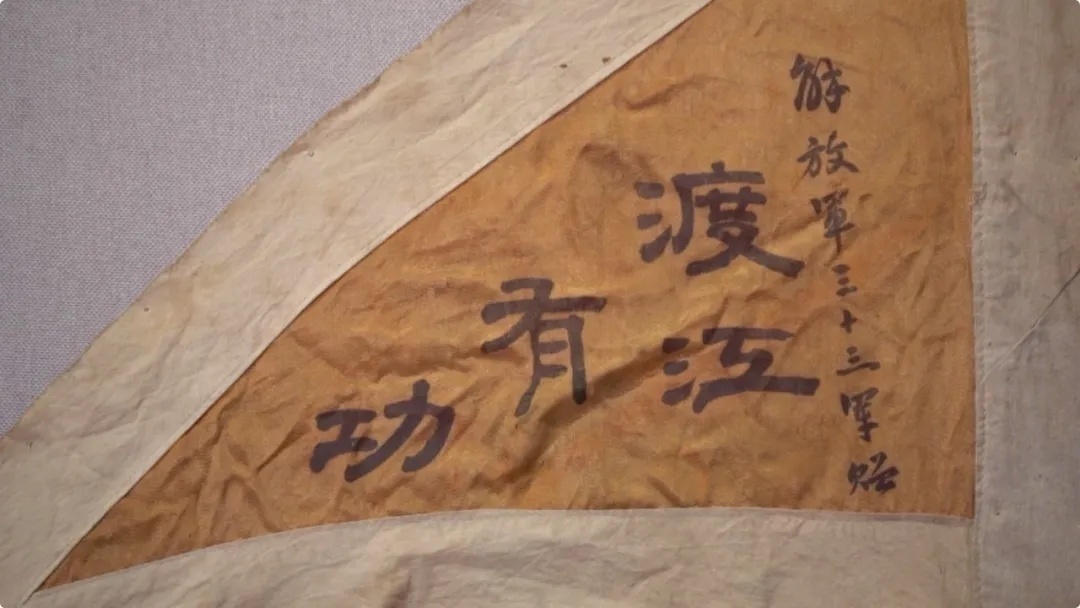 解放軍三十三軍
渡江
有
功